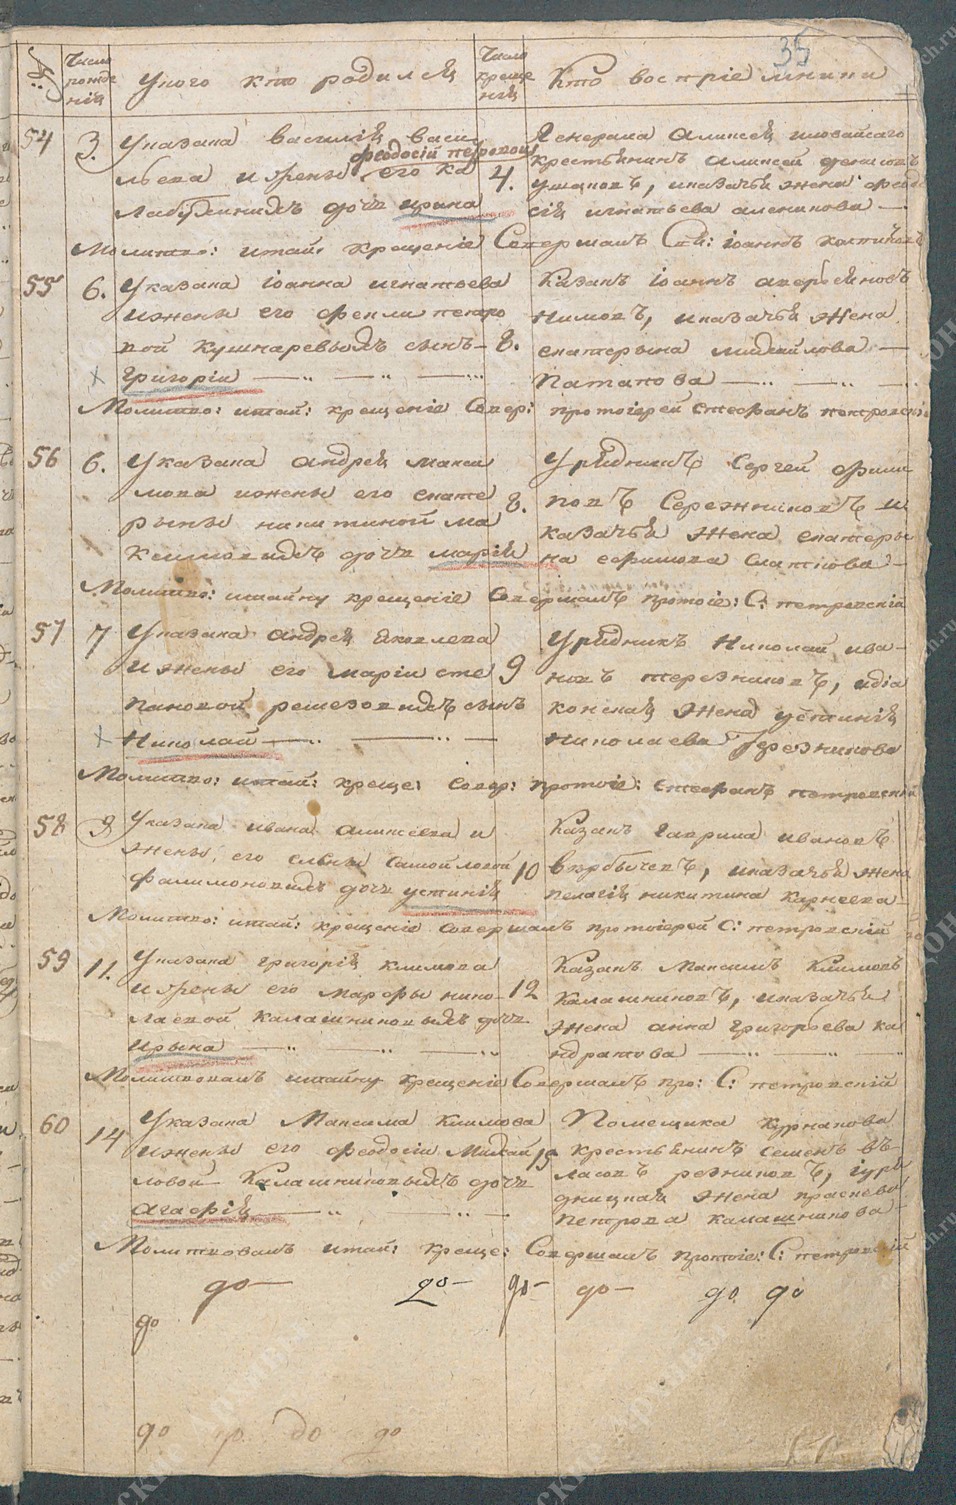 35
№
Число рожде нiя
У кого кто родился
Число креще нiя
Кто воспрiемники
54
3.
Указака Василiя Васи
феодосiй петровой
льева и жены его ка
Лабудиныхъ дочь ирина
4.
Генерала Аликсея иловайсаго
крестьянинъ Аликсей
Ушаповъ, иказачья жена феодо
сiя игнатьева аленикова —
Молитво: итай: крещенiе Совершалъ Свя: iоаннъ
55
6.
Указака iоанна игнатьева
ижены его феклы петро
вой кушнаревыхъ сынъ—
Григорiй — — —
8.
Казакъ iоаннъ
Климовъ, иказачья Жена
екатерына михайлова —
Патапова — — —
Молитво: итай: крещенiе Совер: протоiерей стефанъ петровскiй
56
6.
Указака андрея макси
мова ижены его екате
рыны никитиной ма
ксимовыхъ дочь марiя
8.
Урядникъ Сергей фили
повъ Сережниковъ и
казачья Жена екатеры
на ефимова Слатнова —
Молитво: итайну крещенiе Совершалъ протоiе: С: петровскiй
57
7
Указака андрея Яковлева
ижены его марiи сте
пановой решезовыхъ сынъ
Николай — — —
9
Урядникъ Николай ива—
новъ терезниковъ, идiа
конская Жена устинiя
николаева Терезникова
Молитво: итай: креще: совер: протоiе: стефанъ петровскiй
58
9
Указака ивана аликсеева и
жены его елены самойловой
фалимоновыхъ дочь устинiя
10
Казакъ гаврила ивановъ
Вербычевъ, иказачья жена
пелагiя никитина карнеева—
Молитво: итай: крещенiе совершалъ протоiерей С: петровскiй
59
11.
Указака григорiя климова
ижены его марфы нико—
лаевой калашниковыхъ дочь
Ирына — — —
12
Казакъ Максимъ Климовъ
Калашниковъ, иказачья
Жена анна Григорьева ка
ндратова — — —
Молитвовалъ итайну крещенiе Совершалъ про: С: петровскiй
60
14
Указака Максима Климова
ижены его феодосiи Михай
ловой Калашниковыхъ дочь
агафiя — — —
15
Помещика Курнакова
крестьянинъ семенъ въ—
ласовъ резниковъ, iуря
дницкая жена прасковья
петрова калашникова—
Молитвовалъ итай: креще: Совершалъ протоiе: С: петровскiй
до— до— до— до— до до
до
до до до